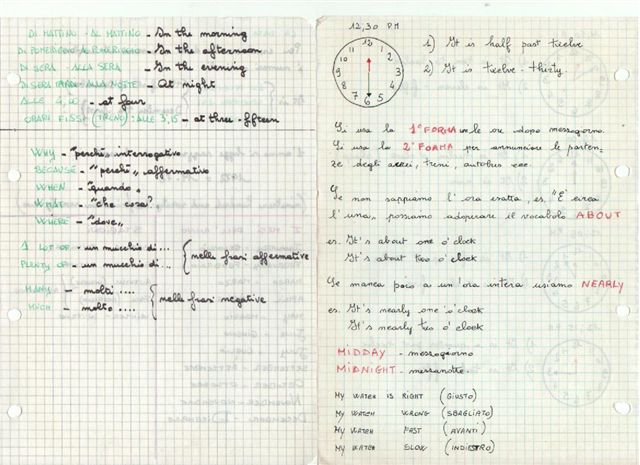 DI MATTINO - AL MATTINO - In the morning
DI POMERIGGIO - AL POMERIGGIO - In the afternoon
DI SERA - ALLA SERA - In the evening
DI SERA TARDA - ALLA NOTTE - At night
ALLE 4,00 - at four
ORARI FISSI (TRENO): ALLE 3,15 - at three-fifteen
WHY - "perchè" interrogativo
BECAUSE - "perchè" affermativo
WHEN - "quando"
WHAT - "che cosa?"
WHERE - "dove"
A LOT OF - un mucchio di...
PLENTY OF - un mucchio di...
nelle frasi affermative
MANY - molti ....
MUCH - molto ....
nelle frasi negative
12,30 PM
12 1 2 3 4 5 6 7 8 9 10 11
1) It is half past twelve
2) It is twelve-thirty
Si usa la 1° FORMA le ore dopo mezzogiorno.
Si usa la 2° FORMA per annunciare le parten-
ze degli aerei, treni, autobus ecc.
Se non sappiamo l'ora esatta, es. "È circa
l'una", possiamo adoperare il vocabolo ABOUT
es. It's about one o' clock
It's about two o' clock
Se manca poco a un'ora intera usiamo NEARLY
es. It's nearly one o' clock
It's nearly two o' clock
MIDDAY - mezzogiorno
MIDNIGHT - mezzanotte.
MY WATCH IS RIGHT (GIUSTO)
MY WATCH WRONG (SBAGLIATO)
MY WATCH FAST (AVANTI)
MY WATCH SLOW (INDIETRO)